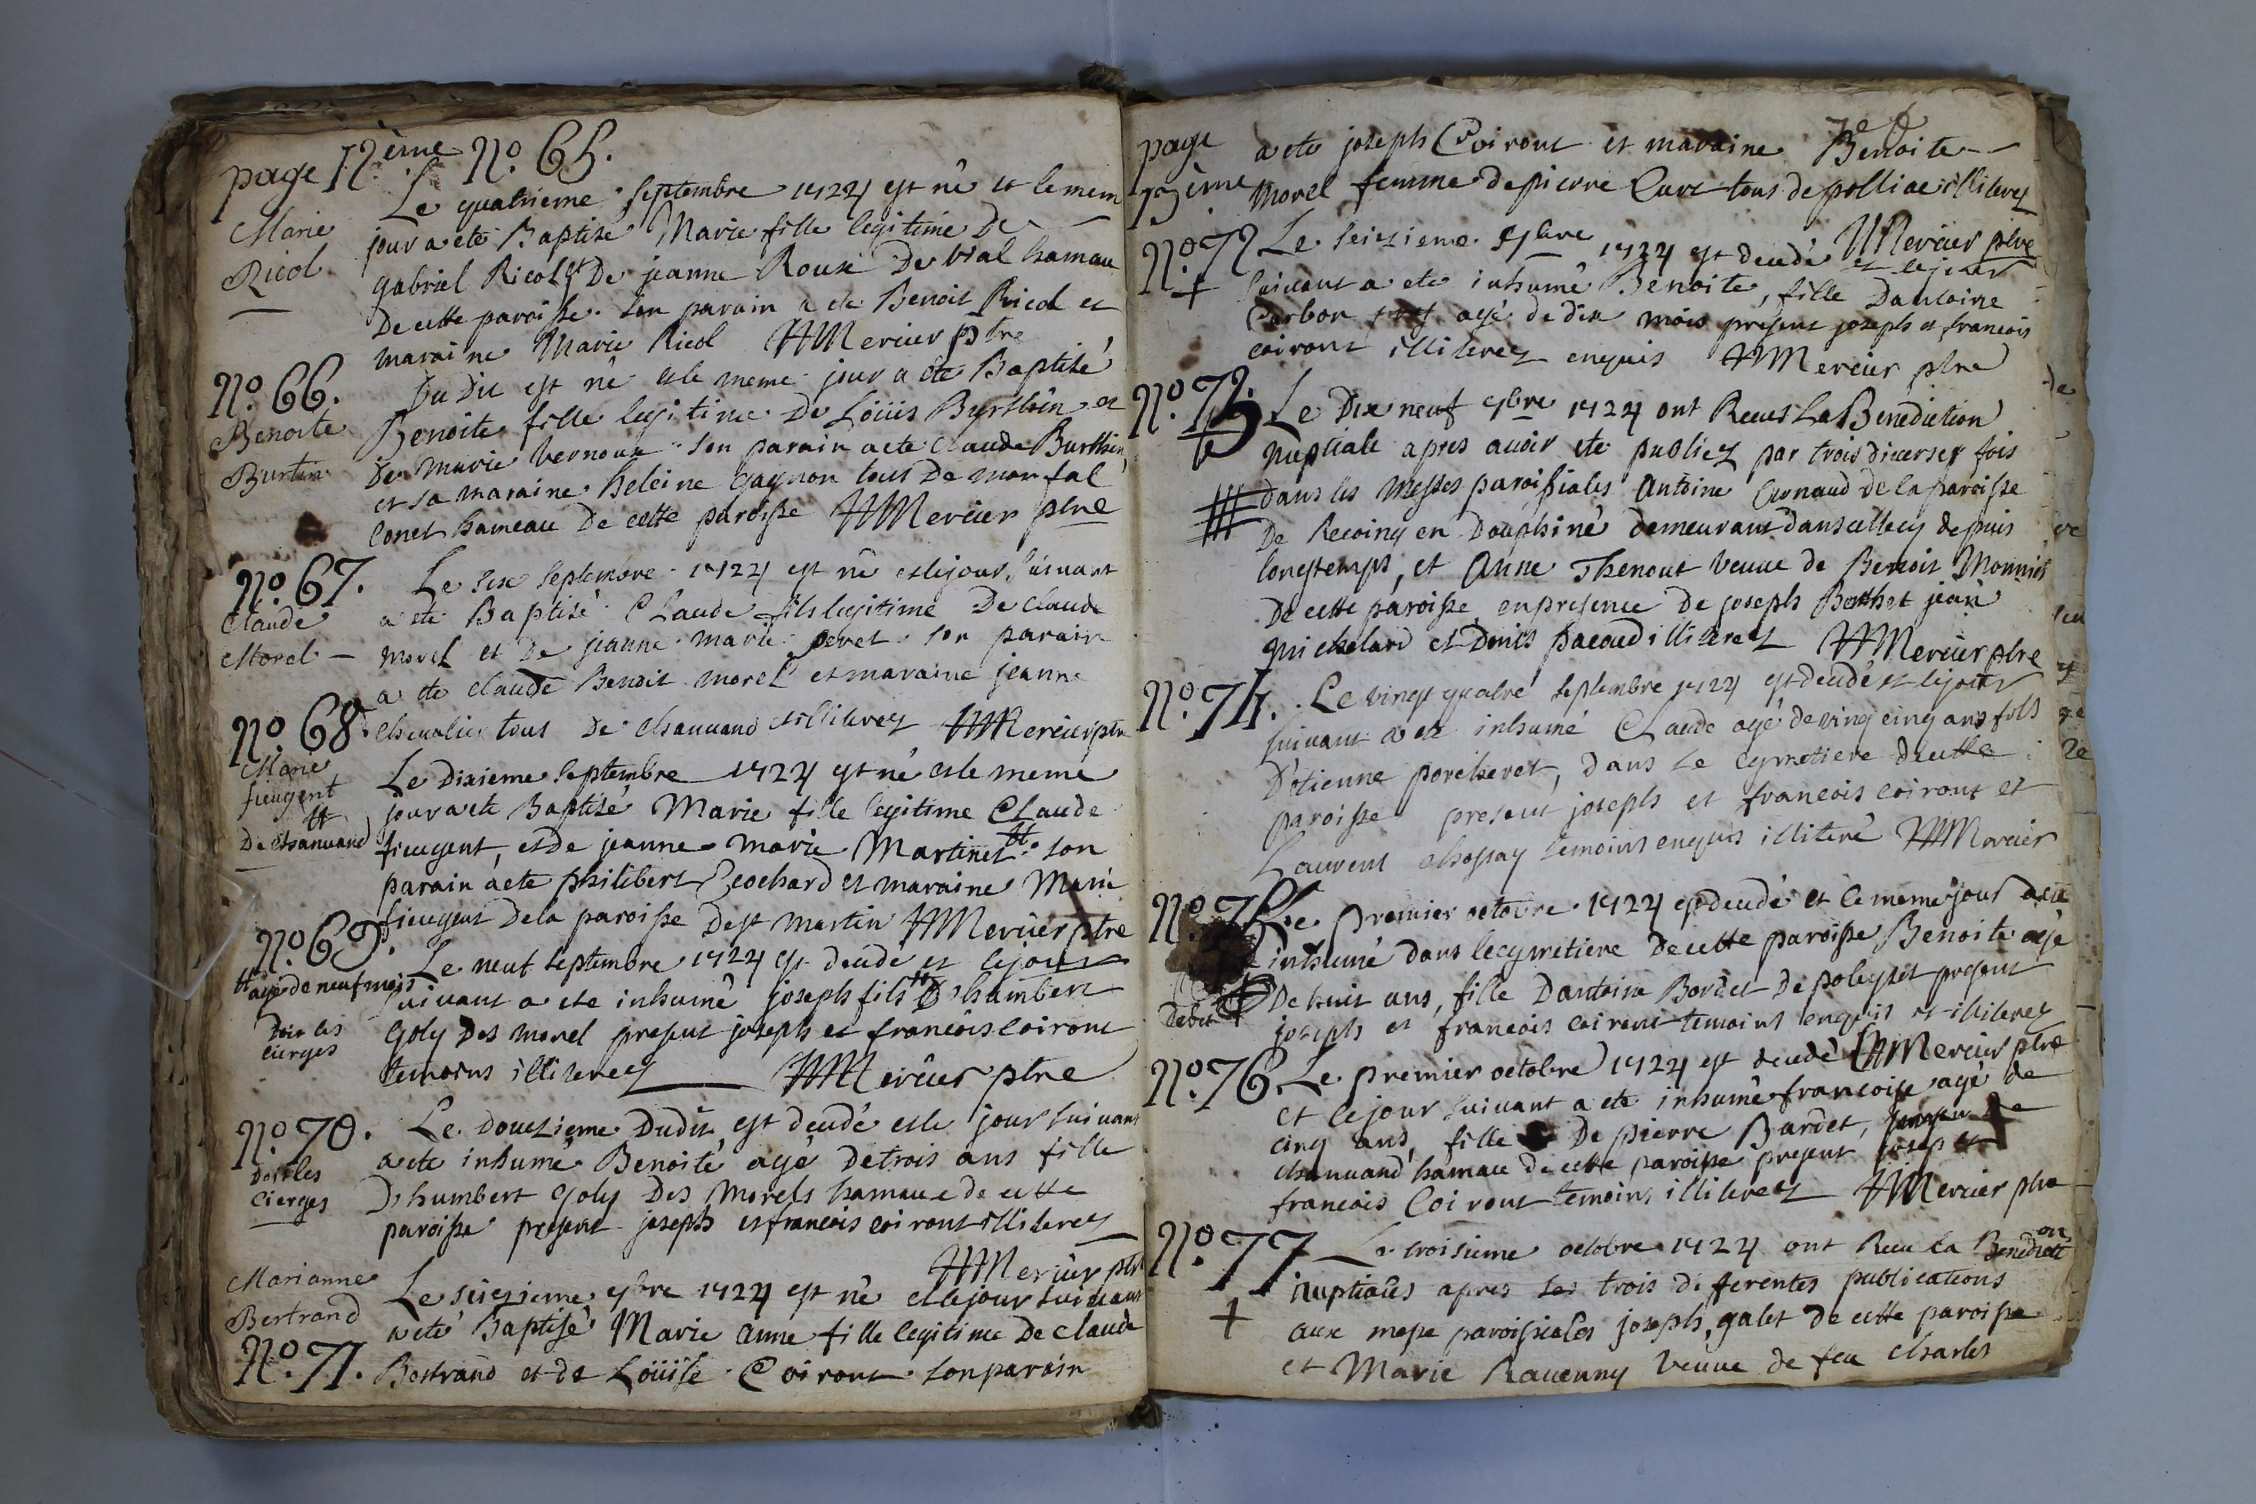 page 12ème No. 65.
Le quatrieme septembre 1724 est né et le mem
Marie
Ricol
jour a eté Baptisé Marie fille legitime De
gabriel Ricol et De jeanne Roux De vial hamau
De cette paroisse. son parain a ete Benoit Ricol et
maraine Marie Ricol Mercier ptre
No. 66.
Benoite
Burtin
Du Dit est né et le meme jour a ete Baptisé
Benoite fille legitime De Loüis Byrthin et
De marie vernoux son parain a ete Claude Burthin
et sa maraine heleine gagnon tous De monfal
conet hameau De cette paroisse Mercier ptre
No. 67.
Claude
Morel
Le six septembre 1724 est né et le jour suivant
a ete Baptisé Claude fils legitime De Claude
morel et De jeanne marie peret son parain
a ete claude Benoit morel et maraine jeanne
chevalier tous De chanuand illiterez Mercier ptre
No. 68.
Marie
fieugent
De chanuand
Le Dixieme septembre 1724 est né et le meme
jour a ete Baptisé Marie fille legitime Claude
fieugent, et de jeanne marie Martinet son
parain a ete philibert Cochard et maraine Marie
fieugent De la paroisse De st martin Mercier ptre
No. 69.
agé de neuf mois
Doit les
cierges
Le neuf septembre 1724 est decede et le jour
suivant a ete inhumé joseph fils D'humbert
Goly Des morel present joseph et francois coiront
temoins illiterez Mercier ptre
No. 70.
Doit les
Cierges
Le Douezieme Dudit est decedé et le jour suivant
a ete inhumé Benoite agé de trois ans fille
D'humbert Goly Des Morels hamaue de cette
paroisse present joseph et francois coiront illiterez
Mercier ptre
Marianne
Bertrand
No. 71.
Le seizieme 7bre 1724 est né et le jour suivant
a ete Baptisé Marie anne fille legitime De claude
Bertrand et de Loüise Coiront son parain
page
13ème
a ete joseph Coiront et maraine Benoite
Morel femme de pierre Curt tous de polliac illiterez
Mercier ptre
No. 72
Le seizieme 7bre 1724 est decedé et le jour
suivant a ete inhumé Benoite, fille Dantoine
Carbon agé de dix mois present joseph et francois
coiront illiterez enquis Mercier ptre
No. 73.
Le Dix neuf 7bre 1724 ont Receu La Benediction
Nuptiale apres avoir ete publiez par trois diverses fois
dans les Messes paroissiales Antoine Curnaud de la paroisse
De Recoing en Dauphiné demeurant dans cellecy depuis
longtemps, et Anne Thenout veuve de Benoit Monnier
De cette paroisse en presence De joseph Berthet jean
Michelard et Denis pacoud illiterez Mercier ptre
No. 74.
Le vingt quatre septembre 1724 est decedé et le jour
suivant a ete inhumé Claude agé de ving cinq ans fils
D'etienne porcheret, dans le cymetiere de cette
paroisse present joseph et francois coiront et
Laurent chossay temoins enquis illiteré Mercier
No. 75
Le premier octobre 1724 est decedé et le meme jour a ete
inhumé dans le cymetiere De cette paroisse Benoite agé
De huit ans, fille Dantoine Bordet De poleyset present
joseph et francois coiront temoins enquis et illiterez
Mercier ptre
No. 76.
Le premier octobre 1724 est decedé
et le jour suivant a ete inhumé francoise agé de
cinq ans, fille De pierre Bardet, de
chanuand hamau de cette paroisse present joseph et
francois Coiront temoins illiterez Mercier ptre
No. 77
Le troisieme octobre 1724 ont Receu la Benediction
Nuptiales apres les trois diferentes publications
aux messe paroissiales joseph galet de cette paroisse
et Marie Ravenny veuve de feu charles